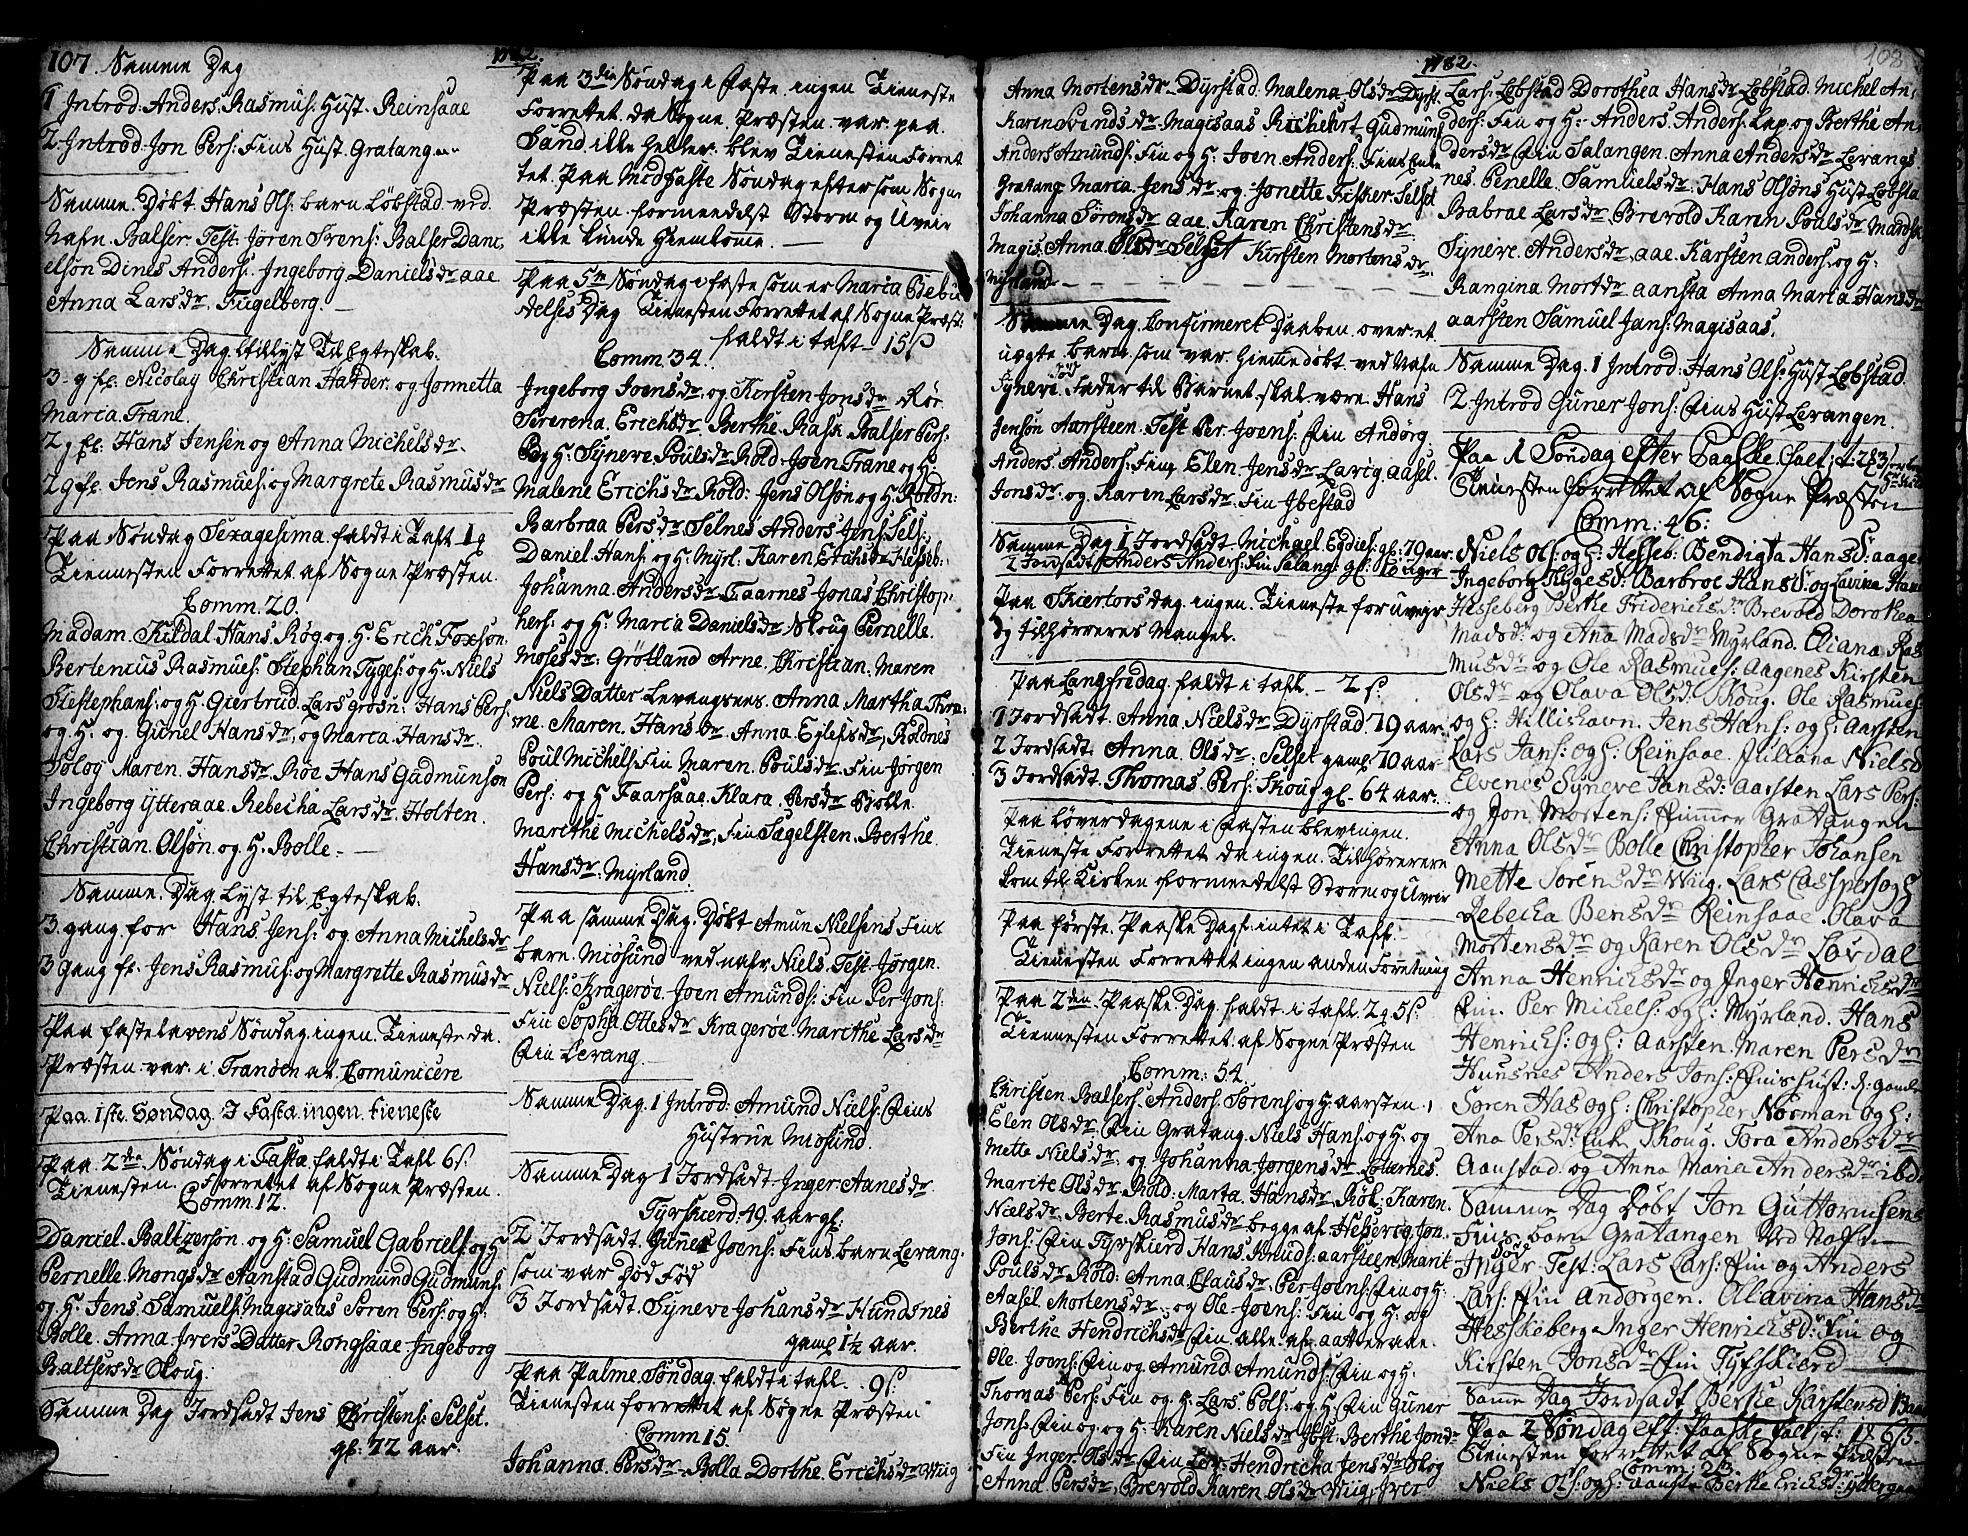 107. Samme Dag
1 Introd: Anders Rasmus: Hust. Reinsaae
2 Introd Jon Pers: Fins Hust. Gratang
Samme Døbt Hans Ols: barn Løbstad ved
Nafn Balser Test. Jøren Svens: Balser Dani
elsøn Dines Anders: Ingeborg Daniels dr aae
Anna Lars dr Fugelberg.
Samme Dag tillyst Til Egteskab.
3 g fl. Nicolay Christian Harder og Jonnetta
Maria Trane.
2 g fl. Hans Jensen og Anna Michels dr
2 g fl. Jens Rasmus: og Margrete Rasmus dr
Paa Søndag Sexagesima faldt i Tafl 1
Tienesten Forrettet af Sogne Præsten.
Comm. 20.
Madam Kildal Hans Røg og H. Erich Foxson
Bertenius Rasmus: Stephan Tyges: og H. Niels
Stephans: og H. Giertrud Lars Hans Pers
og H. og Gunel Hans dr og Marta Hans dr
Maren Hans dr Røe Hans Gudmunson
Ingeborg ytteraae Rebecha Lars dr Holten
Christian Olsøn og H. Bolle.
Samme Dag Lyst til Egteskab.
3 gang for Hans Jens: og Anna Michels dr
3 gang fl. Jens Rasmus: og Margrette Rasmus dr
Paa fastelavens Søndag ingen Tieneste da
Præsten var i Tranøen at Comunicere
Paa 1ste Søndag I Fasta ingen tieneste
Paa 2den Søndag i Fasta faldt i Tafl 6 s
Tienesten Forrettet af Sogne Præsten.
Comm 12.
Daniel Baltzersøn og H: Samuel Gabriels og H
Pernelle Mongs dr Aanstad Gudmund Gudmuns:
og H. Jens Samuels: Magisaas Søren Pers: og H:
Bolle Anna Ivers Datter Rongsaae Ingeborg
Baltsers dr Skoug.
Samme Dag Jordsadt Jens Christens: Selset.
gl: 72 aar.
1782.
Paa 3die Søndag i Faste ingen Tieneste
Forrettet da Sogne Præsten var paa
Sand ikke heller blev Tienesten Forret
tet Paa Midfaste Søndag efter som Sogne
Præsten formedelst Storm og Uveir
ikke kunde hiemkomme.
Paa 5te Søndag i faste som er Maria Bebu
delses Dag Tienesten Forrettet af Sogne Præst:
faldt i tafl 15 s
Comm 34.
Ingeborg Joens dr og Kirsten Jons dr Rør
Serena Erichs dr Berthe Rask Balser Pers:
og H. Syneve Pouls dr Rold Joen Trane og H:
Malene Erichs dr Rold: Jens Olsøn og H. Roldn:
Barbraa Pers dr Selnes Anders Jens: Sels:
Daniel Hans: og H. Myrl: Karen Erichs dr Hesseb:
Johanna Anders dr Faarnes Jonas Christop
hers: og H: Maria Daniels dr Skoug Pernelle
Moses dr Grøtland Arne Christian Maren
Niels Datter Levangsnes Anna Martha Thro
ne Maren Hans dr Anna Eylefs dr Roldnes
Poul Michels: Fin Maren Pouls dr Fin Jørgen
Pers: og H Faarsaae Klara Pers dr Bolle
Marithe Michels dr Fin Sagelsten Berthe
Hans dr Myrland
Paa samme Dag Døbt Amun Nielsens Fins
barn Miosund ved nafn Niels Test. Jørgen
Niels: Kragerøe Joen Amunds: Fin Per Jons:
Fin Sopha Ottes dr Kragerøe Marithe Lars dr
Fin Levang
Samme Dag 1 Introd: Amund Niels: Fins
Hustrue Miosund.
Samme Dag 1 Jordsadt Inger Aanes dr
Tyrskierd 49 aar gl:
2 Jordsadt Gunner Joens: Fins barn Levang.
som var Død Fød
3 Jordsadt Syneve Johans dr Hundsnes
gaml 1½ aar.
Paa Palme Søndag faldt i tafl 9 s
Tienesten forrettet af Sogne Præsten
Comm 15.
Johanna Pers dr Bolla Dorthe Erichs dr Wiig
1782.
Anna Mortens dr Dyrstad Malena Ols dr Dyrst.
Karen Svends dr Magisaas Richert Gudmuns
Anders Amunds: Fin og H: Joen Anders: Fins Enke
Gratang Maria Jens dr og Jonette Fisker Selset
Johanna Sørens dr aae Karen Christens dr
Magis: Anna Ols dr Selset Kirsten Mortens dr
Myrland
Samme Dag Confirmeret Daaben over et
uægte barn som var hiemedøbt ved Nafn
Syneve Fader til Barnet skal være Hans
Jensøn Aarsteen Test Per Joens: Fin Andørg
Anders Anders: Fin Elen Jens dr Lavig Aasel
Jons dr og Karen Lars dr Fin Ibestad
Samme Dag 1 Jordsadt Michael Egdies: gl: 79 aar
2 Jordsadt Anders Anders: Fin Salang: gl: 18 uger
Paa Skiertorsdag ingen Tieneste for uveyr
og tilhørreres Mangel.
Paa Langfredag faldt i tafl 2 s.
1 Jordsadt Anna Niels dr Dyrstad 79 aar
2 Jordsadt Anna Ols dr Selset gaml 70 aar
3 Jordsadt Thomas Pers: Skoug gl. 64 aar.
Paa Løverdagene i Fasten blev ingen
Tieneste Forrettet da ingen Tilhørerere
kom til Kirken formedelst Storm og Uveir
Paa første Paaske Dag intet i Tafl
Tienesten Forrettet ingen anden Forretning
Paa 2den Paaske Dag faldt i tafl 2 5 s.
Tienesten Forrettet af Sogne Præsten
Comm: 54.
Christen Balsers: Anders Sørens: og H. aarsten
Elen Ols dr Fin Gratang Niels Hans: og H. og
Mette Niels dr og Johanna Jørgens dr Løternes
Marite Ols dr Rold: Marta Hans dr Røk: Karen
Niels dr Berte Rasmus dr begge af Jon
Jons: Fin Tyrskierd Hans Knuds: aarsteen Marit
Pouls dr Rold: Anna Claus dr Per Joens: Fin og H:
Aasel Mortens dr og Ole Joens: Fin og H: og
Berthe Hendrichs dr Fin alle af aatteraae
Ole Joens: Fin og Amund Amunds: Fin og H:
Thomas Pers: Fin og H: Lars Pols: og H: Fin Guner
Jons: Fin og og H: Karen Niels dr Berthe Jons dr
Fin Inger Ols dr Fin Hendricha Jens dr Skog
Anna Pers dr Brevold Karen Ols dr Wiig Iver
108
Lars: Løbstad Dorothea Hans dr Løbstad Michel An
ders: Fin og H: Anders Anders: Lap og Berthe An
ders dr Fin Salangen Anna Anders dr Levangs
nes Penelle Samuels dr Hans Olsøns Hust Løbsta
Babrae Lars dr Brevold Karen Pouls dr
Syneve Anders dr aae Karsten anders: og H:
Rangina Mort dr aansta Anna Maria Hans dr
aarsten Samuel Jans: Magisaas,
Samme Dag 1 Introd: Hans Ols: Hust Løbstad
2 Introd Guner Jons: Fins Hust Levangen.
Paa 1 Søndag efter Paaske falt i t
Tienesten forrettet af Sogne Præsten
Comm: 46:
Niels Ols: og H: Hesseb: Bendigta Hans d: aagen
Ingeborg Tyges d: Barbroe Hans d: og Lavina Hans
Hesseberg Berthe Friderichs dr Brevold Dorothea
Mads dr og Ana Mads dr Myrland Eliana Ras
mus dr og Ole Rasmus: Aagenes Kirsten
Ols dr og Olava Ols d: Skoug Ole Rasmus
og H: Hillishavn Jens Hans: og H: Aarsten
Lars Jans: og H: Reinsaae Juliana Niels d
Elvenes Syneve Jans d: Aarsten Lars Pers:
og Jon Mortens: Finner Gratangen
Anna Ols dr Bolle Christopher Johansen
Mette Sørens dr Wiig Lars Caspers: og H
Rebecka Bens dr Reinsaae Olava
Mortens dr og Karen Ols dr Løvdal
Anna Henrichs dr og Inger Henrichs dr
Fin Per Michels: og H: Myrland Hans
Henrichs: og H: Aarsten Maren Pers dr
Hunsnes Anders Jons: Fins Hust:
Søren Has og H: Christopher Norman og H:
Ana Pers dr Enk Skoug Tora Anders dr
Aanstad og Anna Maria Anders dr ibd:
Samme Dag Døbt Jon Guttormsens
Fins barn Gratangen Ved Nafn
Inger Test: Lars Lars: Fin og Anders
Lars: Fin Andørgen Olavina Hans d:
Hesseberg Inger Henrichs d: Fin og
Kirsten Jons dr Fin Tyfskierd
Samme Dag Jordsadt Berthe Karstens d 13 aar
Paa 2 Søndag eft: Paaske falt
Tienesten forrettet af Sogne Præsten
Comm:
Niels Ols: og H: aanst: Berthe Erichs d: ytteraae